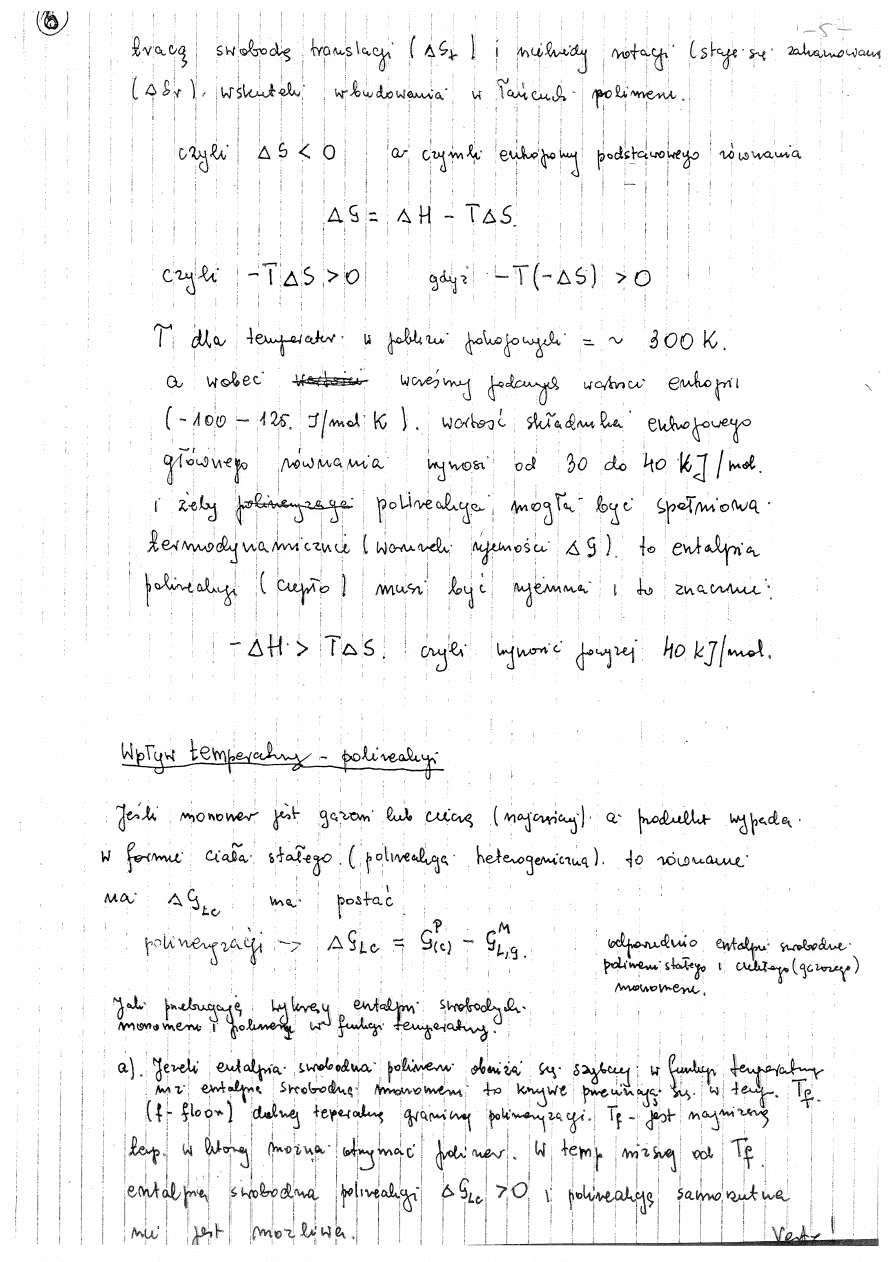 8
-5-
tracą swobodę translacji (ΔSt) i niekiedy rotacji (staje się zahamowana
(ΔSr). wskutek wbudowania w łańcuch polimeru.
czyli ΔS < 0 a czynnik entropowy podstawowego równania
ΔG = ΔH - TΔS.
czyli -TΔS > 0 gdyż -T(-ΔS) > 0
T dla temperatur w pobliżu pokojowych = ~ 300 K.
a wobec wcześniej podanych wartości entropii
(-100 - 125. J/mol K). wartość składnika entropowego
głównego równania wynosi od 30 do 40 KJ/mol.
i żeby polimeryzacja polireakcja mogła być spełniona
termodynamicznie (warunek ujemności ΔG). to entalpia
polireakcji (ciepło) musi być ujemna i to znacznie:
-ΔH > TΔS. czyli wynosić powyżej 40 kJ/mol.
Wpływ temperatury - polireakcji
Jeśli monomer jest gazem lub cieczą (najczęściej) a produkt wypada
w formie ciała stałego (polireakcja heterogeniczna). to równanie
na ΔGLc ma postać
polimeryzacji -> ΔGLc = G(c)^P - GL,g^M.
odpowiednio entalpie swobodne
polimeru stałego i ciekłego (gazowego)
monomeru.
Jak przebiegają wykresy entalpii swobodnych
monomeru i polimeru w funkcji temperatury.
a). Jeżeli entalpia swobodna polimeru obniża się szybciej w funkcji temperatury
niż entalpia swobodna monomeru to krzywe przecinają się w temp. Tf.
(f-floor) dolnej temperaturze granicznej polimeryzacji. Tf - jest najniższą
temp. w której można otrzymać polimer. W temp niższej od Tf
entalpia swobodna polireakcji ΔGLc > 0 i polireakcja samorzutna
nie jest możliwa.